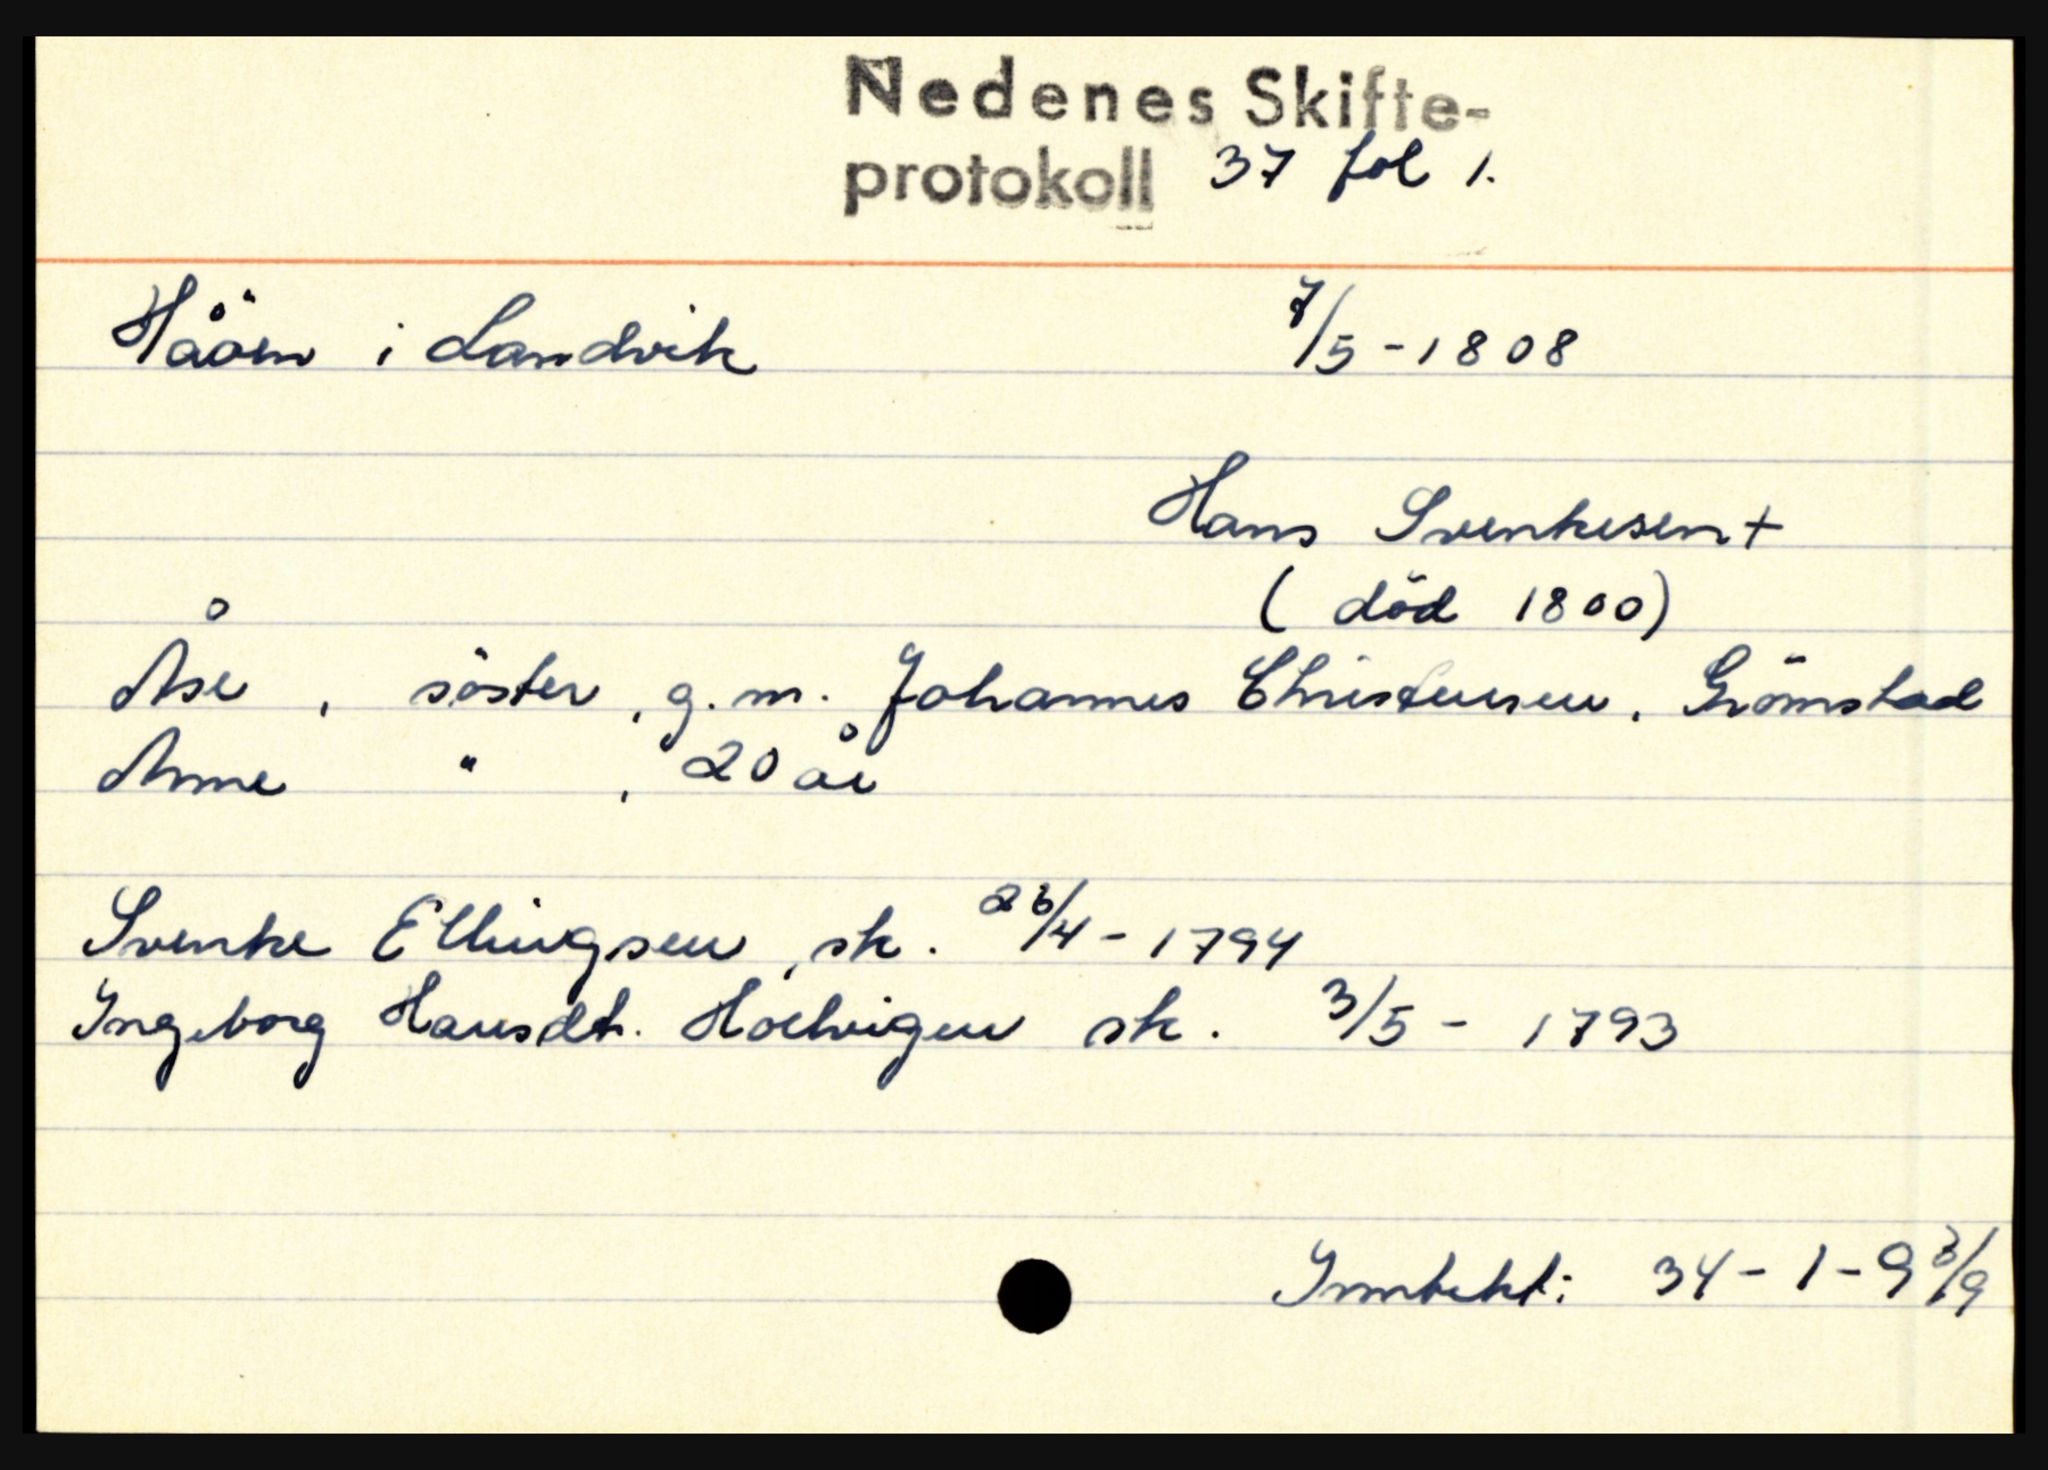 Nedenes Skifte-
protokoll 37 fol 1.
Håöen i Landvik 7/5-1808
Hans Svenkesen +
( död 1800)
Åse , söster , g.m. Johannes Christensen, Grömstad
Anne " , 20 år
Svenke Ellingsen , sk. 26/4-1794
Ingeborg Hansdt. Holvigen sk. 3/5 - 1793
Inntekt: 34-1-9 3/9